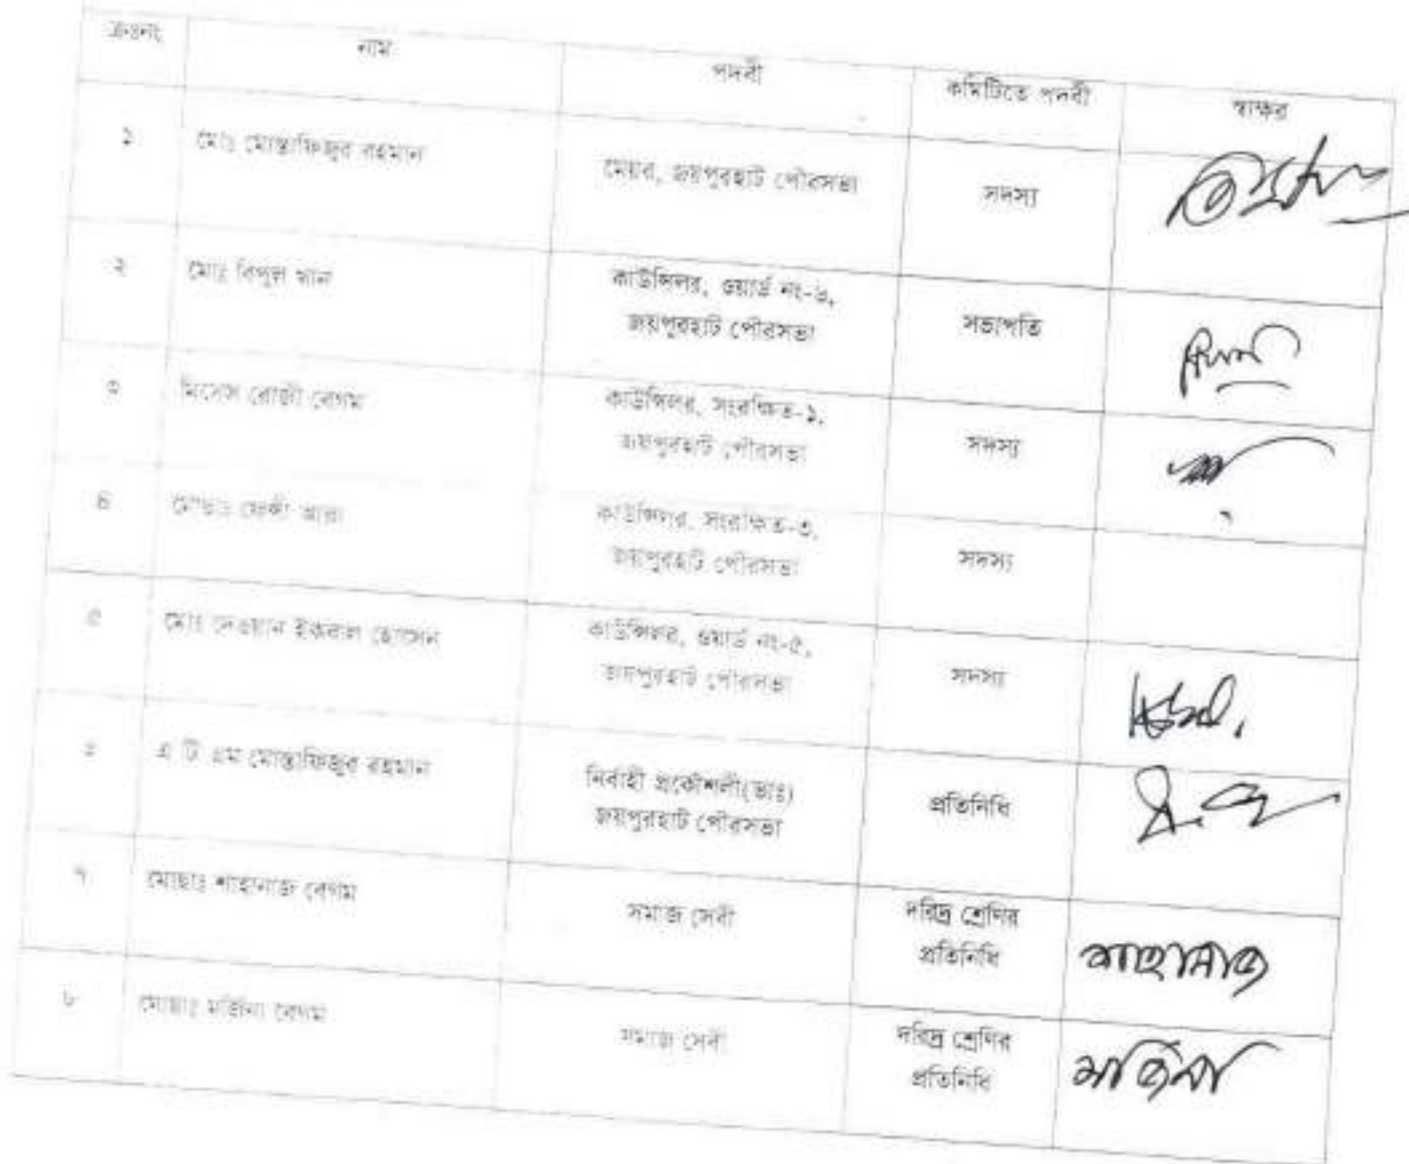 ক্রঃনং নাম পদবী কমিটিতে পদবী স্বাক্ষর
১ মোঃ মোস্তাফিজুর রহমান মেয়র, জয়পুরহাট পৌরসভা সদস্য
২ মোঃ বিপুল খান কাউন্সিলর, ওয়ার্ড নং-৬,
জয়পুরহাট পৌরসভা সভাপতি
৩ মিসেস রোজী বেগম কাউন্সিলর, সংরক্ষিত-১,
জয়পুরহাট পৌরসভা সদস্য
৪ আরা কাউন্সিলর, সংরক্ষিত-৩,
জয়পুরহাট পৌরসভা সদস্য
৫ মোঃ দেওয়ান ইকবাল হোসেন কাউন্সিলর, ওয়ার্ড নং-৫,
জয়পুরহাট পৌরসভা সদস্য
এ টি এম মোস্তাফিজুর রহমান নির্বাহী প্রকৌশলী(ভাঃ)
জয়পুরহাট পৌরসভা প্রতিনিধি
৭ মোছাঃ শাহানাজ বেগম সমাজ সেবী দরিদ্র শ্রেণির
প্রতিনিধি শাহানাজ
৮ মোছাঃ মর্জিনা বেগম সমাজ সেবী দরিদ্র শ্রেণির
প্রতিনিধি মর্জিনা